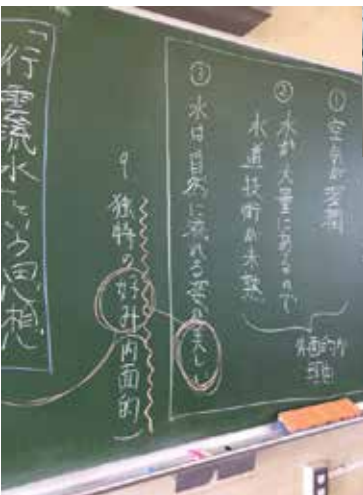 ① 空気が乾燥
② 水が大量にあるので
水道技術が未熟
外面的な
理由
③ 水は自然に流れる姿が美しい
9
独特の好み(内面的)
「行雲流水」という思想